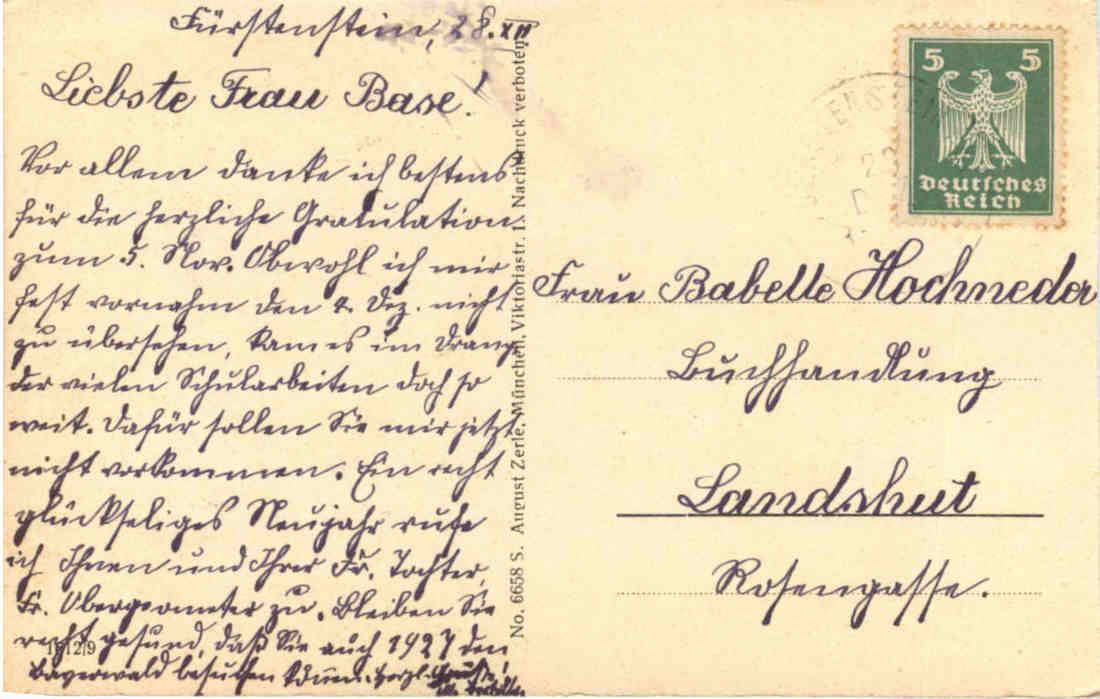 Fürstenstein, 28. XII
Liebste Frau Base!
Vor allem danke ich bestens
für die herzliche Gratulation
zum 5. Nov. Obwohl ich mir
fest vornahm den 4. Dez. nicht
zu übersehen, kam es im Drang
der vielen Schularbeiten doch so
weit. Dafür sollen Sie mir jetzt
nicht vorkommen. Ein recht
glückseliges Neujahr rufe
ich Ihnen und Ihrer Fr. Tochter,
Fr. Obergeometer zu. Bleiben Sie
recht gesund, daß Sie auch 1927 den
Bayerwald besuchen können. Herzl. Grüße
1612/9
No. 6658 S. August Zerle, München, Viktoriastr. 1. Nachdruck verboten.
5 5
Deutsches
Reich
Frau Babette Hochneder
Buchhandlung
Landshut
Rosengasse.